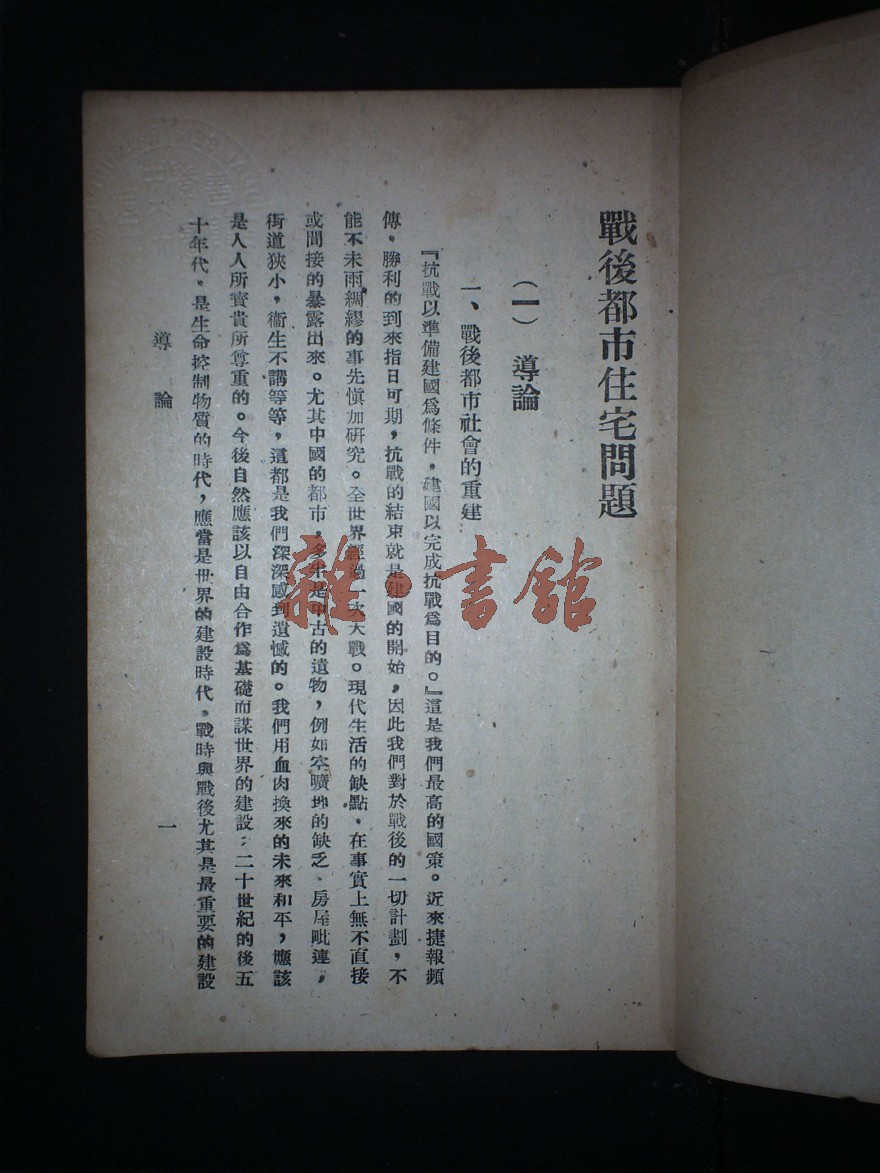 戰後都市住宅問題
(一) 導論
一、戰後都市社會的重建
『抗戰以準備建國爲條件，建國以完成抗戰爲目的。』這是我們最高的國策。近來捷報頻
傳，勝利的到來指日可期，抗戰的結束就是建國的開始，因此我們對於戰後的一切計劃，不
能不未雨綢繆的事先愼加硏究。全世界經過一次大戰。現代生活的缺點，在事實上無不直接
或間接的暴露出來。尤其中國的都市，多半是中古的遺物，例如空曠地的缺乏、房屋毗連，
街道狹小，衞生不講等等，這都是我們深深感到遺憾的。我們用血肉換來的未來和平，應該
是人人所寳貴所尊重的。今後自然應該以自由合作爲基礎而謀世界的建設；二十世紀的後五
十年代，是生命控制物質的時代，應當是世界的建設時代，戰時與戰後尤其是最重要的建設
導論
一
雜·書館